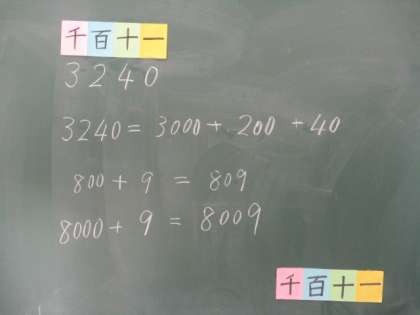 千百十一
3240
3240 = 3000 + 200 + 40
800 + 9 = 809
8000 + 9 = 8009
千百十一